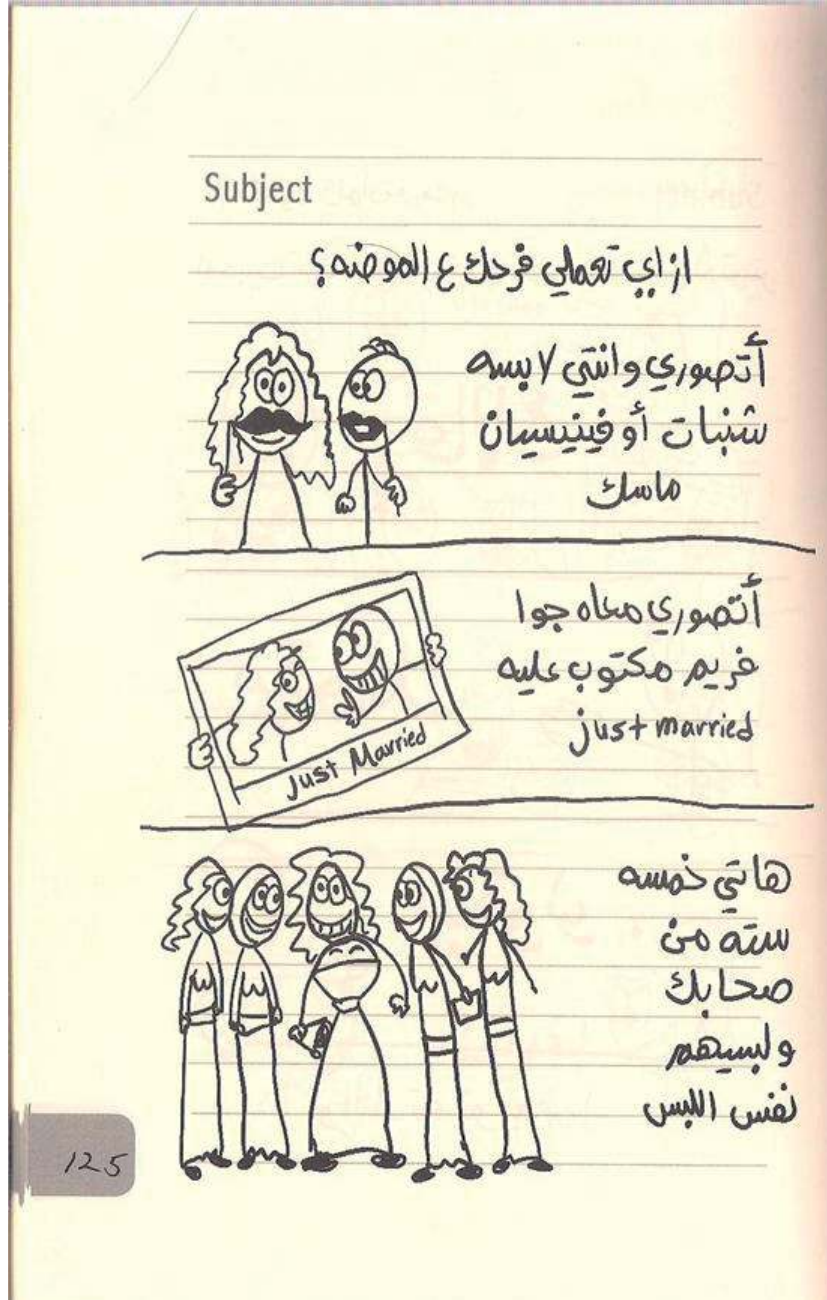 Subject
ازاي تعملي فرحك ع الموضه؟
أتصوري وانتي لابسه
شنبات أو فينيسيان
ماسك
أتصوري معاه جوا
فريم مكتوب عليه
just married
Just Married
هاتي خمسه
سته من
صحابك
ولبسيهم
نفس اللبس
125